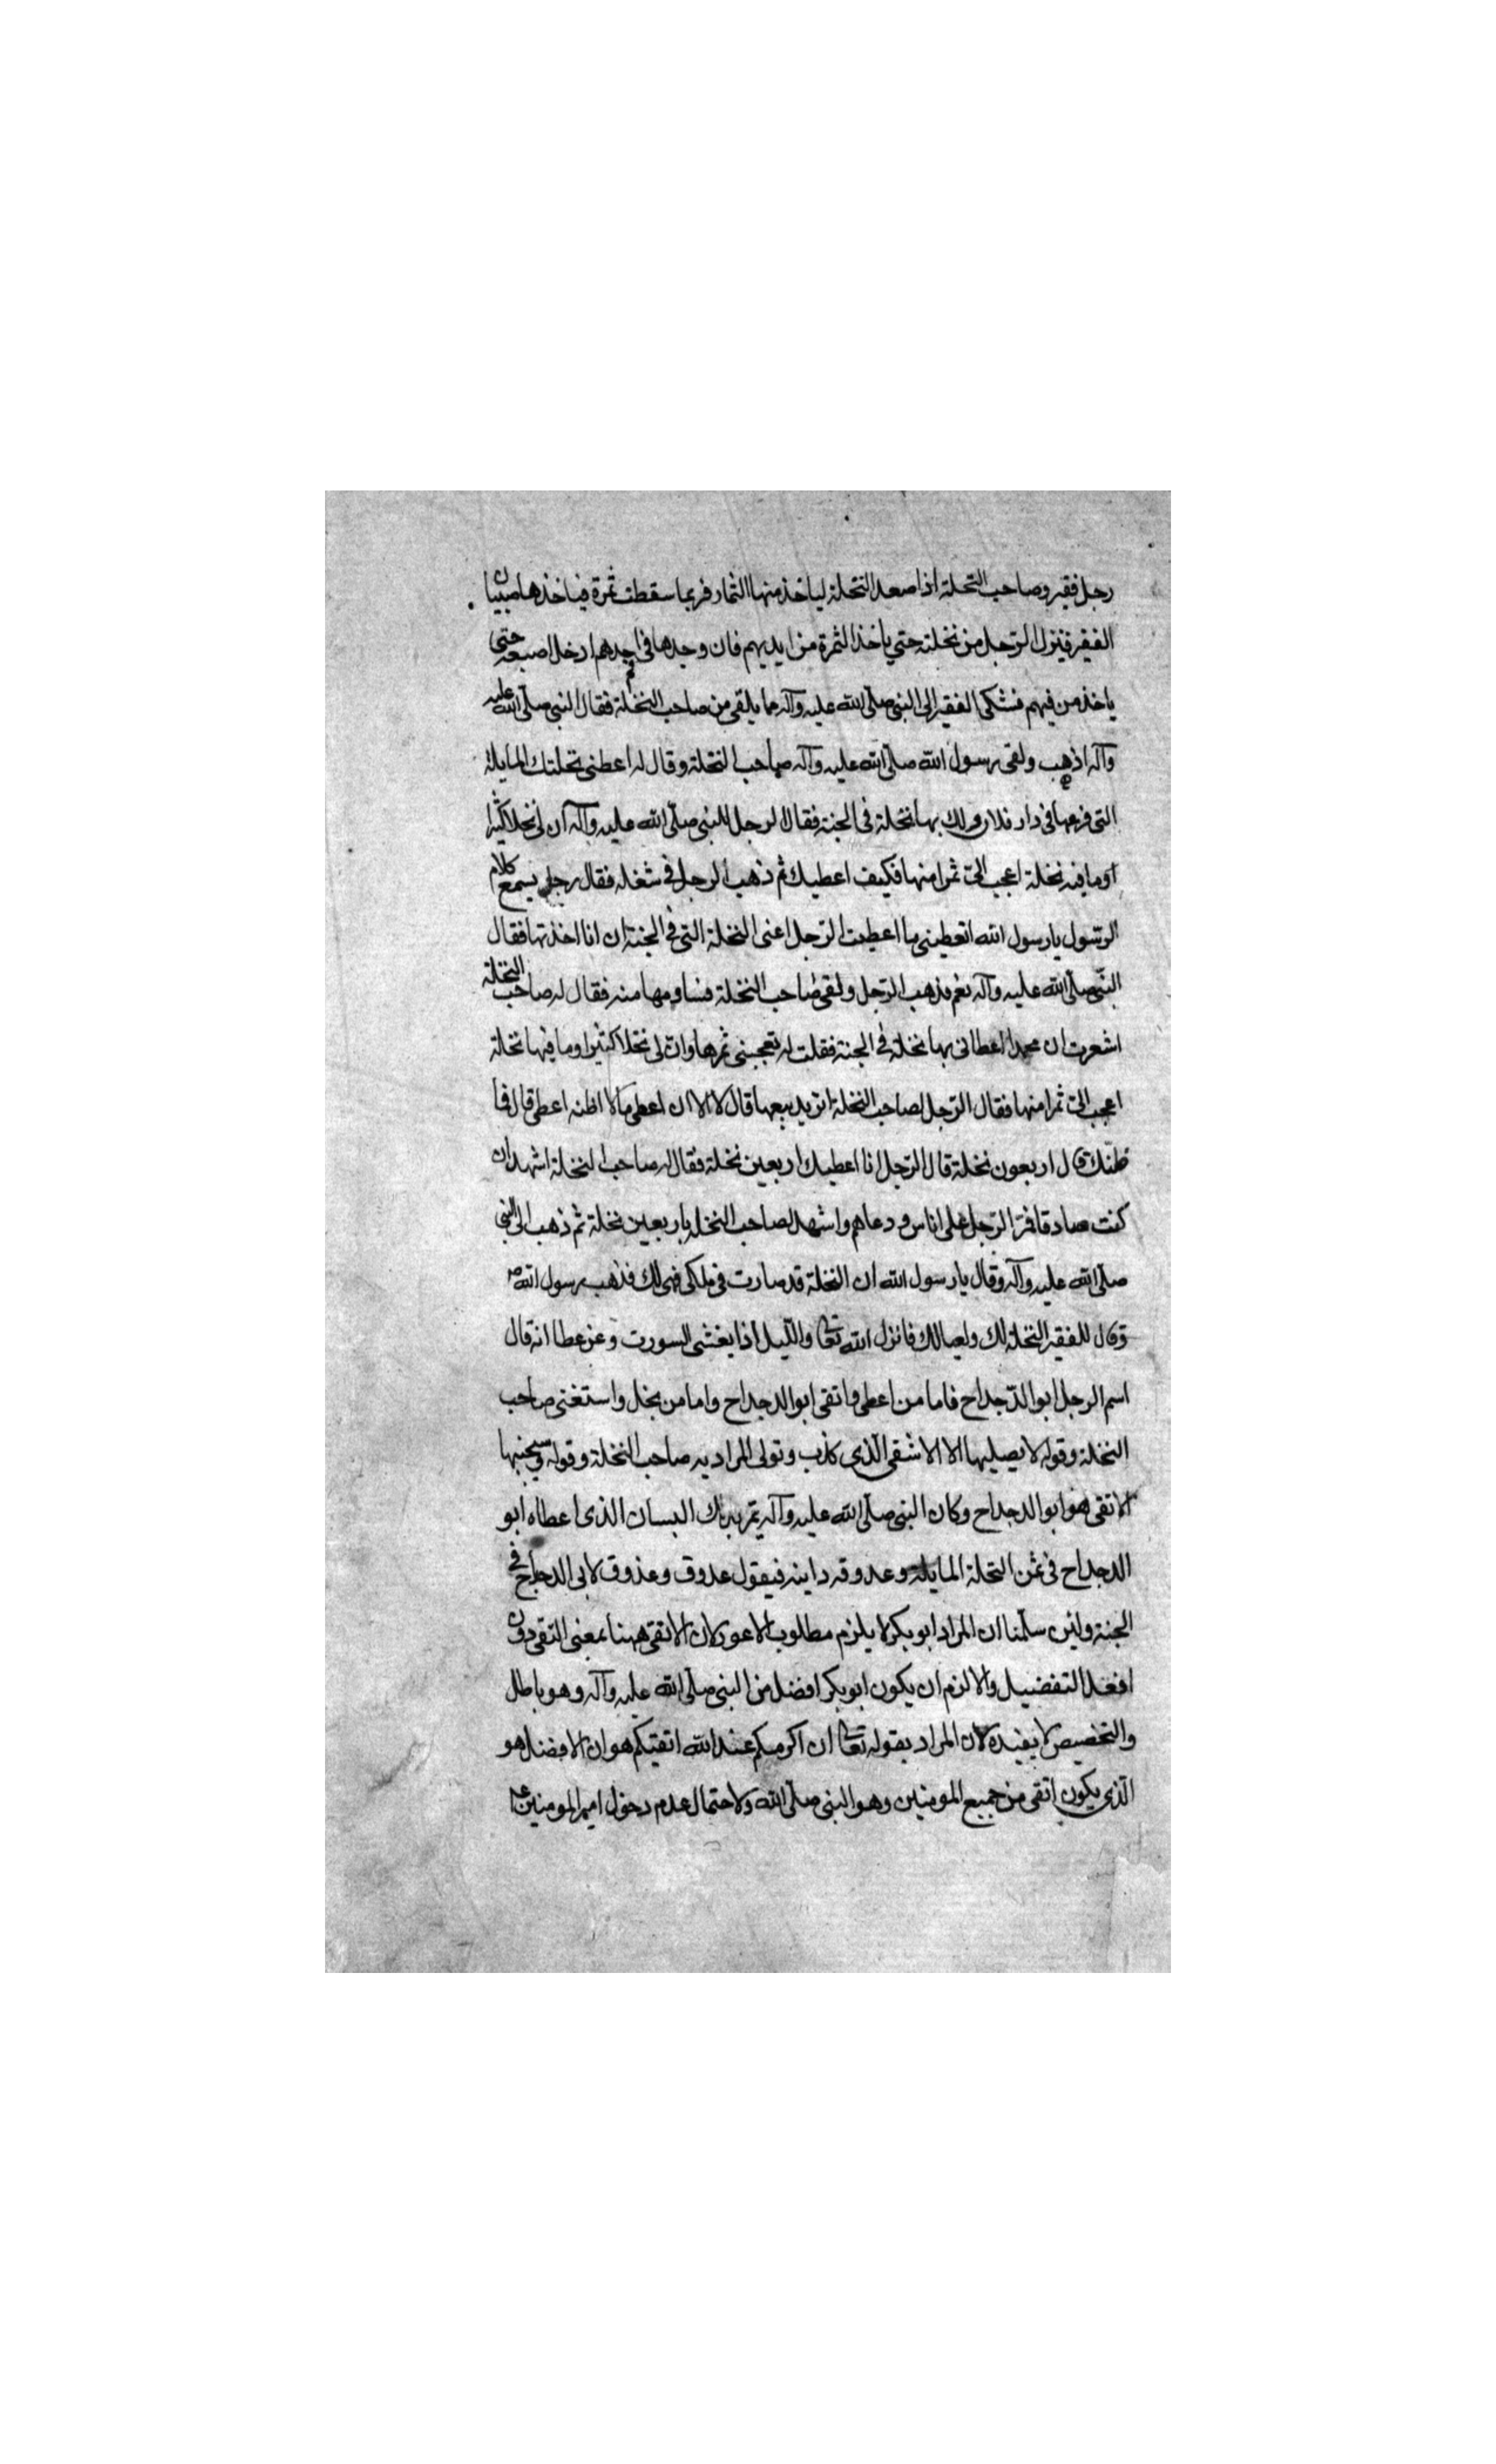 رجل فقير وصاحب النخلة اذا صعد النخلة لياخذ منها الثمار فربما سقطت ثمرة فياخذها صبيان
الفقير فينزل الرّجل من نخلته حتي ياخذ الثمرة من ايديهم فان وجدها في احدهم ادخل اصبعه حتى
ياخذ من فيهم فشكى الفقير الى النبى صلّى الله عليه وآله مما يلقى من صاحب النخلة فقال النبى صلّى الله عليه
وآله اذهب ولقى رسول الله صلّى الله عليه وآله صاحب النخلة وقال له اعطنى نخلتك المايلة
التى فرعها فى دار فلان ولك بها نخلة فى الجنة فقال الرجل للنبى صلّى الله عليه وآله ان لى نخلا كثيرا
وما فيه نخلة اعجب الىّ ثمرا منها فكيف اعطيك ثم ذهب الرجل فى شغله فقال رجل يسمع كلام
الرسّول يا رسول الله اتعطينى بما اعطيت الرّجل اعنى النخلة التى فى الجنة ان انا اخذتها فقال
النّبى صلّى الله عليه وآله نعم فذهب الرّجل ولقى صاحب النخلة فساومها منه فقال له صاحب النخلة
اشعرت ان محمدا اعطانى بها نخلة فى الجنة فقلت له تعجبنى ثمرها وان لى نخلا كثيرا وما فيها نخلة
اعجب الىّ ثمرا منها فقال الرّجل لصاحب النخلة اتريد بيعها قال لا الا ان اعطى مالا اظنه اعطى قال فما
ظنّك قال اربعون نخلة قال الرّجل انا اعطيك اربعين نخلة فقال له صاحب النخلة اشهد ان
كنت صادقا فمرّ الرّجل على اناس ودعاهم واشهد لصاحب النخلة باربعين نخلة ثم ذهب الى النبى
صلّى الله عليه وآله وقال يا رسول الله ان النخلة قد صارت فى ملكى فهى لك فذهب رسول الله ص
وقال للفقير النخلة لك ولعيالك فانزل الله تعالى والليل اذا يغشى السورت وعن عطا انه قال
اسم الرجل ابو الدّحداح فاما من اعطى واتقى ابو الدحداح واما من بخل واستغنى صاحب
النخلة وقوله لا يصليها الا الاشقى الّذى كذب وتولى المراد به صاحب النخلة وقوله وسيجنبها
الاتقى هو ابو الدحداح وكان النبى صلّى الله عليه وآله يمر بذلك البستان الذى اعطاه ابو
الدحداح فى ثمن النخلة المايلة وعذوقه دانية فيقول عذوق وعذوق لابى الدحداح فى
الجنة ولئن سلّمنا ان المراد ابو بكر لا يلزم مطلوب الاعور لان الاتقى ههنا بمعنى التقى دون
افعل التفضيل والا لزم ان يكون ابو بكر افضل من النبى صلّى الله عليه وآله وهو باطل
والتخصيص لا يفيده لان المراد بقوله تعالى ان اكرمكم عند الله اتقيكم هو ان الافضل هو
الّذى يكون اتقى من جميع المومنين وهو النبى صلّى الله ولاحتمال عدم دخول امير المومنين ع